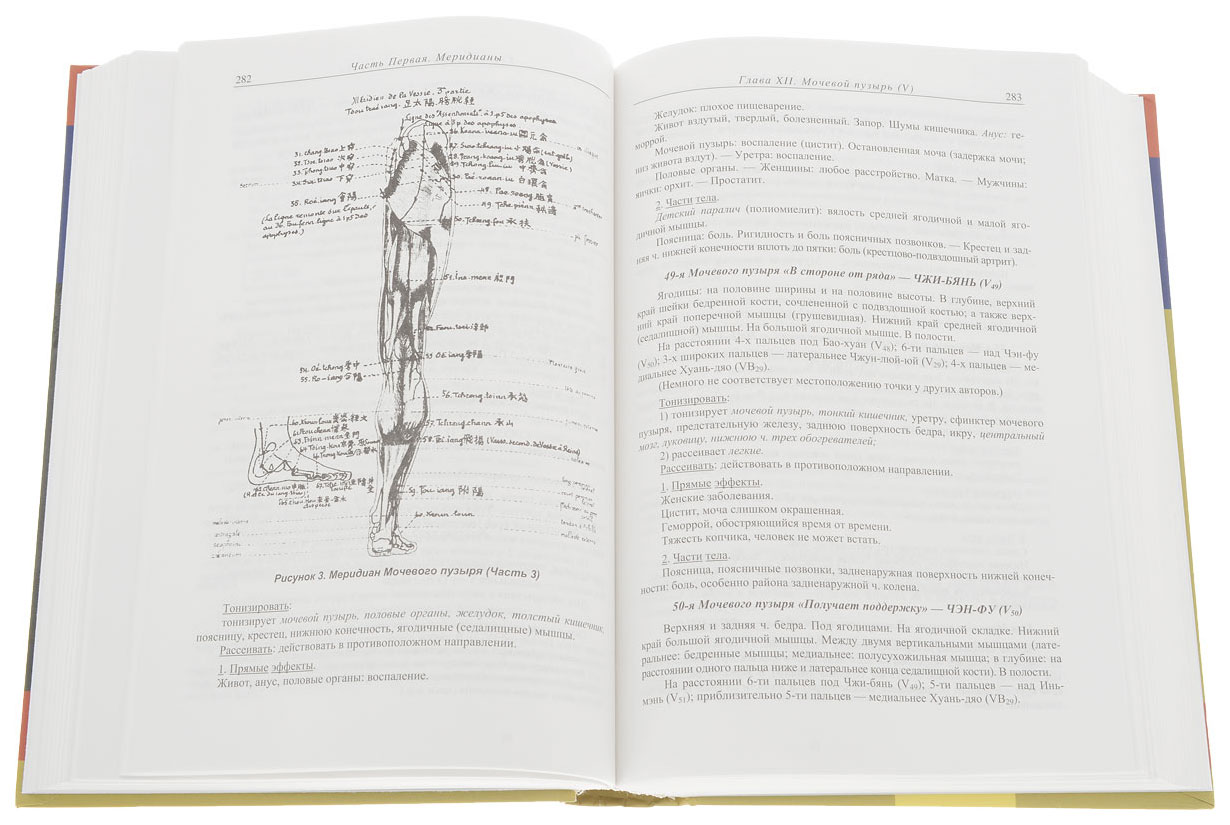 282
Часть Первая. Меридианы
Méridien de la Vessie. 3e partie
31. chang tsiao 上窌
32. Tse tsiao 次窌
33. Tchong tsiao 中窌
34. Sia tsiao 下窌
50. Tcheng fou 承扶
51. Inn-menn 殷門
54. Oé tchong 委中
55. Ro-iang 合陽
57. Tchengchann 承山
58. Fei iang 飛揚
59. Fou iang 附陽
60. Kroun loun
Рисунок 3. Меридиан Мочевого пузыря (Часть 3)
Тонизировать:
тонизирует мочевой пузырь, половые органы, желудок, толстый кишечник,
поясницу, крестец, нижнюю конечность, ягодичные (седалищные) мышцы.
Рассеивать: действовать в противоположном направлении.
1. Прямые эффекты.
Живот, анус, половые органы: воспаление.
Глава XII. Мочевой пузырь (V)
283
Желудок: плохое пищеварение.
Живот вздутый, твердый, болезненный. Запор. Шумы кишечника. Анус: ге-
моррой.
Мочевой пузырь: воспаление (цистит). Остановленная моча (задержка мочи;
низ живота вздут). — Уретра: воспаление.
Половые органы. — Женщины: любое расстройство. Матка. — Мужчины:
яички: орхит. — Простатит.
2. Части тела.
Детский паралич (полиомиелит): вялость средней ягодичной и малой яго-
дичной мышцы.
Поясница: боль. Ригидность и боль поясничных позвонков. — Крестец и зад-
няя ч. нижней конечности вплоть до пятки: боль (крестцово-подвздошный артрит).
49-я Мочевого пузыря «В стороне от ряда» — ЧЖИ-БЯНЬ (V49)
Ягодицы: на половине ширины и на половине высоты. В глубине, верхний
край шейки бедренной кости, сочлененной с подвздошной костью; а также верх-
ний край поперечной мышцы (грушевидная). Нижний край средней ягодичной
(седалищной) мышцы. На большой ягодичной мышце. В полости.
На расстоянии 4-х пальцев под Бао-хуан (V48); 6-ти пальцев — над Чэн-фу
(V50); 3-х широких пальцев — латеральнее Чжун-люй-юй (V29); 4-х пальцев — ме-
диальнее Хуань-дяо (VB29).
(Немного не соответствует местоположению точки у других авторов.)
Тонизировать:
1) тонизирует мочевой пузырь, тонкий кишечник, уретру, сфинктер мочевого
пузыря, предстательную железу, заднюю поверхность бедра, икру, центральный
мозг, луковицу, нижнюю ч. трех обогревателей;
2) рассеивает легкие.
Рассеивать: действовать в противоположном направлении.
1. Прямые эффекты.
Женские заболевания.
Цистит, моча слишком окрашенная.
Геморрой, обостряющийся время от времени.
Тяжесть копчика, человек не может встать.
2. Части тела.
Поясница, поясничные позвонки, задненаружная поверхность нижней конеч-
ности: боль, особенно района задненаружной ч. колена.
50-я Мочевого пузыря «Получает поддержку» — ЧЭН-ФУ (V50)
Верхняя и задняя ч. бедра. Под ягодицами. На ягодичной складке. Нижний
край большой ягодичной мышцы. Между двумя вертикальными мышцами (лате-
ральнее: бедренные мышцы; медиальнее: полусухожильная мышца; в глубине: на
расстоянии одного пальца ниже и латеральнее конца седалищной кости). В полости.
На расстоянии 6-ти пальцев под Чжи-бянь (V49); 5-ти пальцев — над Инь-
мэнь (V51); приблизительно 5-ти пальцев — медиальнее Хуань-дяо (VB29).